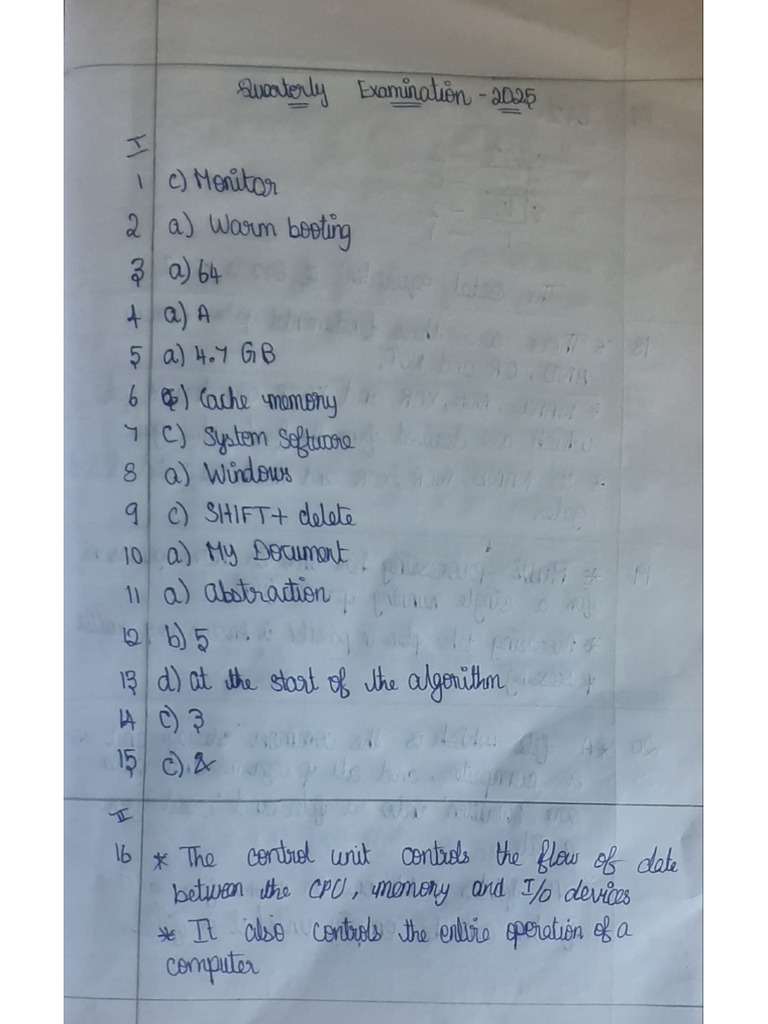 Quarterly Examination - 2025
I
1 c) Monitor
2 a) Warm booting
3 a) 64
4 a) A
5 a) 4.7 GB
6 c) Cache memory
7 c) System Software
8 a) Windows
9 c) SHIFT + delete
10 a) My Document
11 a) abstraction
12 b) 5
13 d) at the start of the algorithm
14 c) 3
15 c). 2
II
16 * The control unit controls the flow of date
between the CPU, memory and I/O devices
* It also controls the entire operation of a
computer